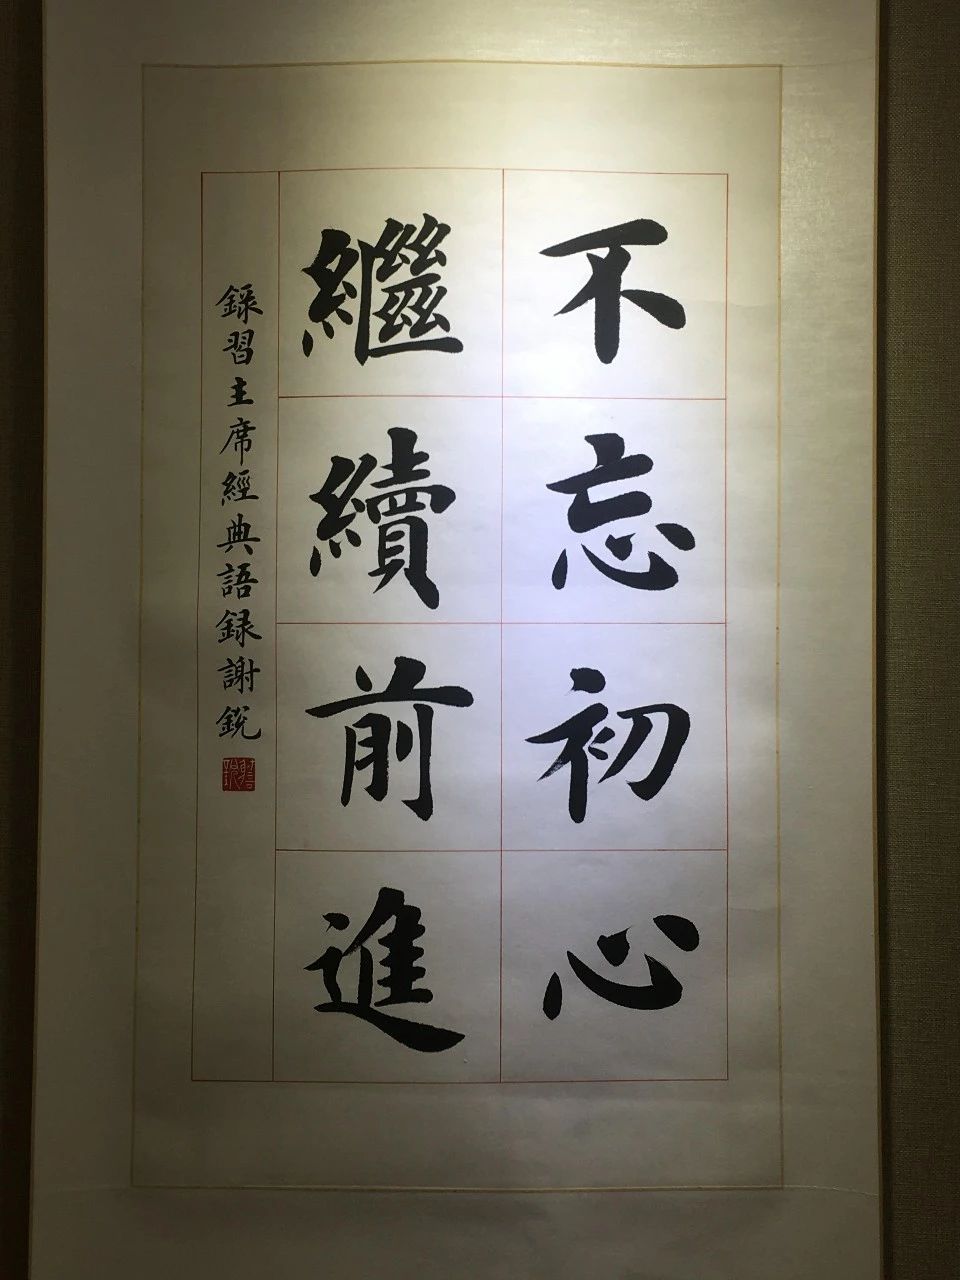 不忘初心
繼續前進
錄習主席經典語録謝銳